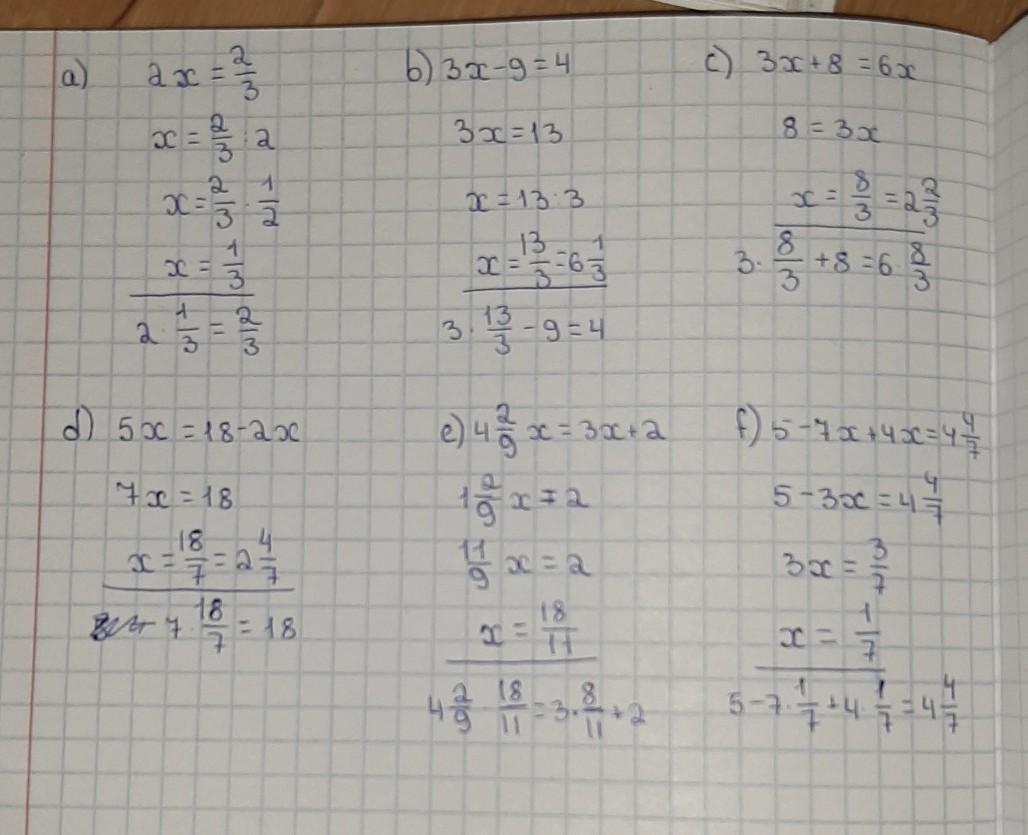 a) 2x = 2/3
x = 2/3 : 2
x = 2/3 · 1/2
x = 1/3
2 · 1/3 = 2/3
b) 3x - 9 = 4
3x = 13
x = 13 : 3
x = 13/3 = 6 1/3
3 · 13/3 - 9 = 4
c) 3x + 8 = 6x
8 = 3x
x = 8/3 = 2 2/3
3 · 8/3 + 8 = 6 · 8/3
d) 5x = 18 - 2x
7x = 18
x = 18/7 = 2 4/7
7 · 18/7 = 18
e) 4 2/9 x = 3x + 2
1 2/9 x = 2
11/9 x = 2
x = 18/11
4 2/9 · 18/11 = 3 · 8/11 + 2
f) 5 - 7x + 4x = 4 4/7
5 - 3x = 4 4/7
3x = 3/7
x = 1/7
5 - 7 · 1/7 + 4 · 1/7 = 4 4/7